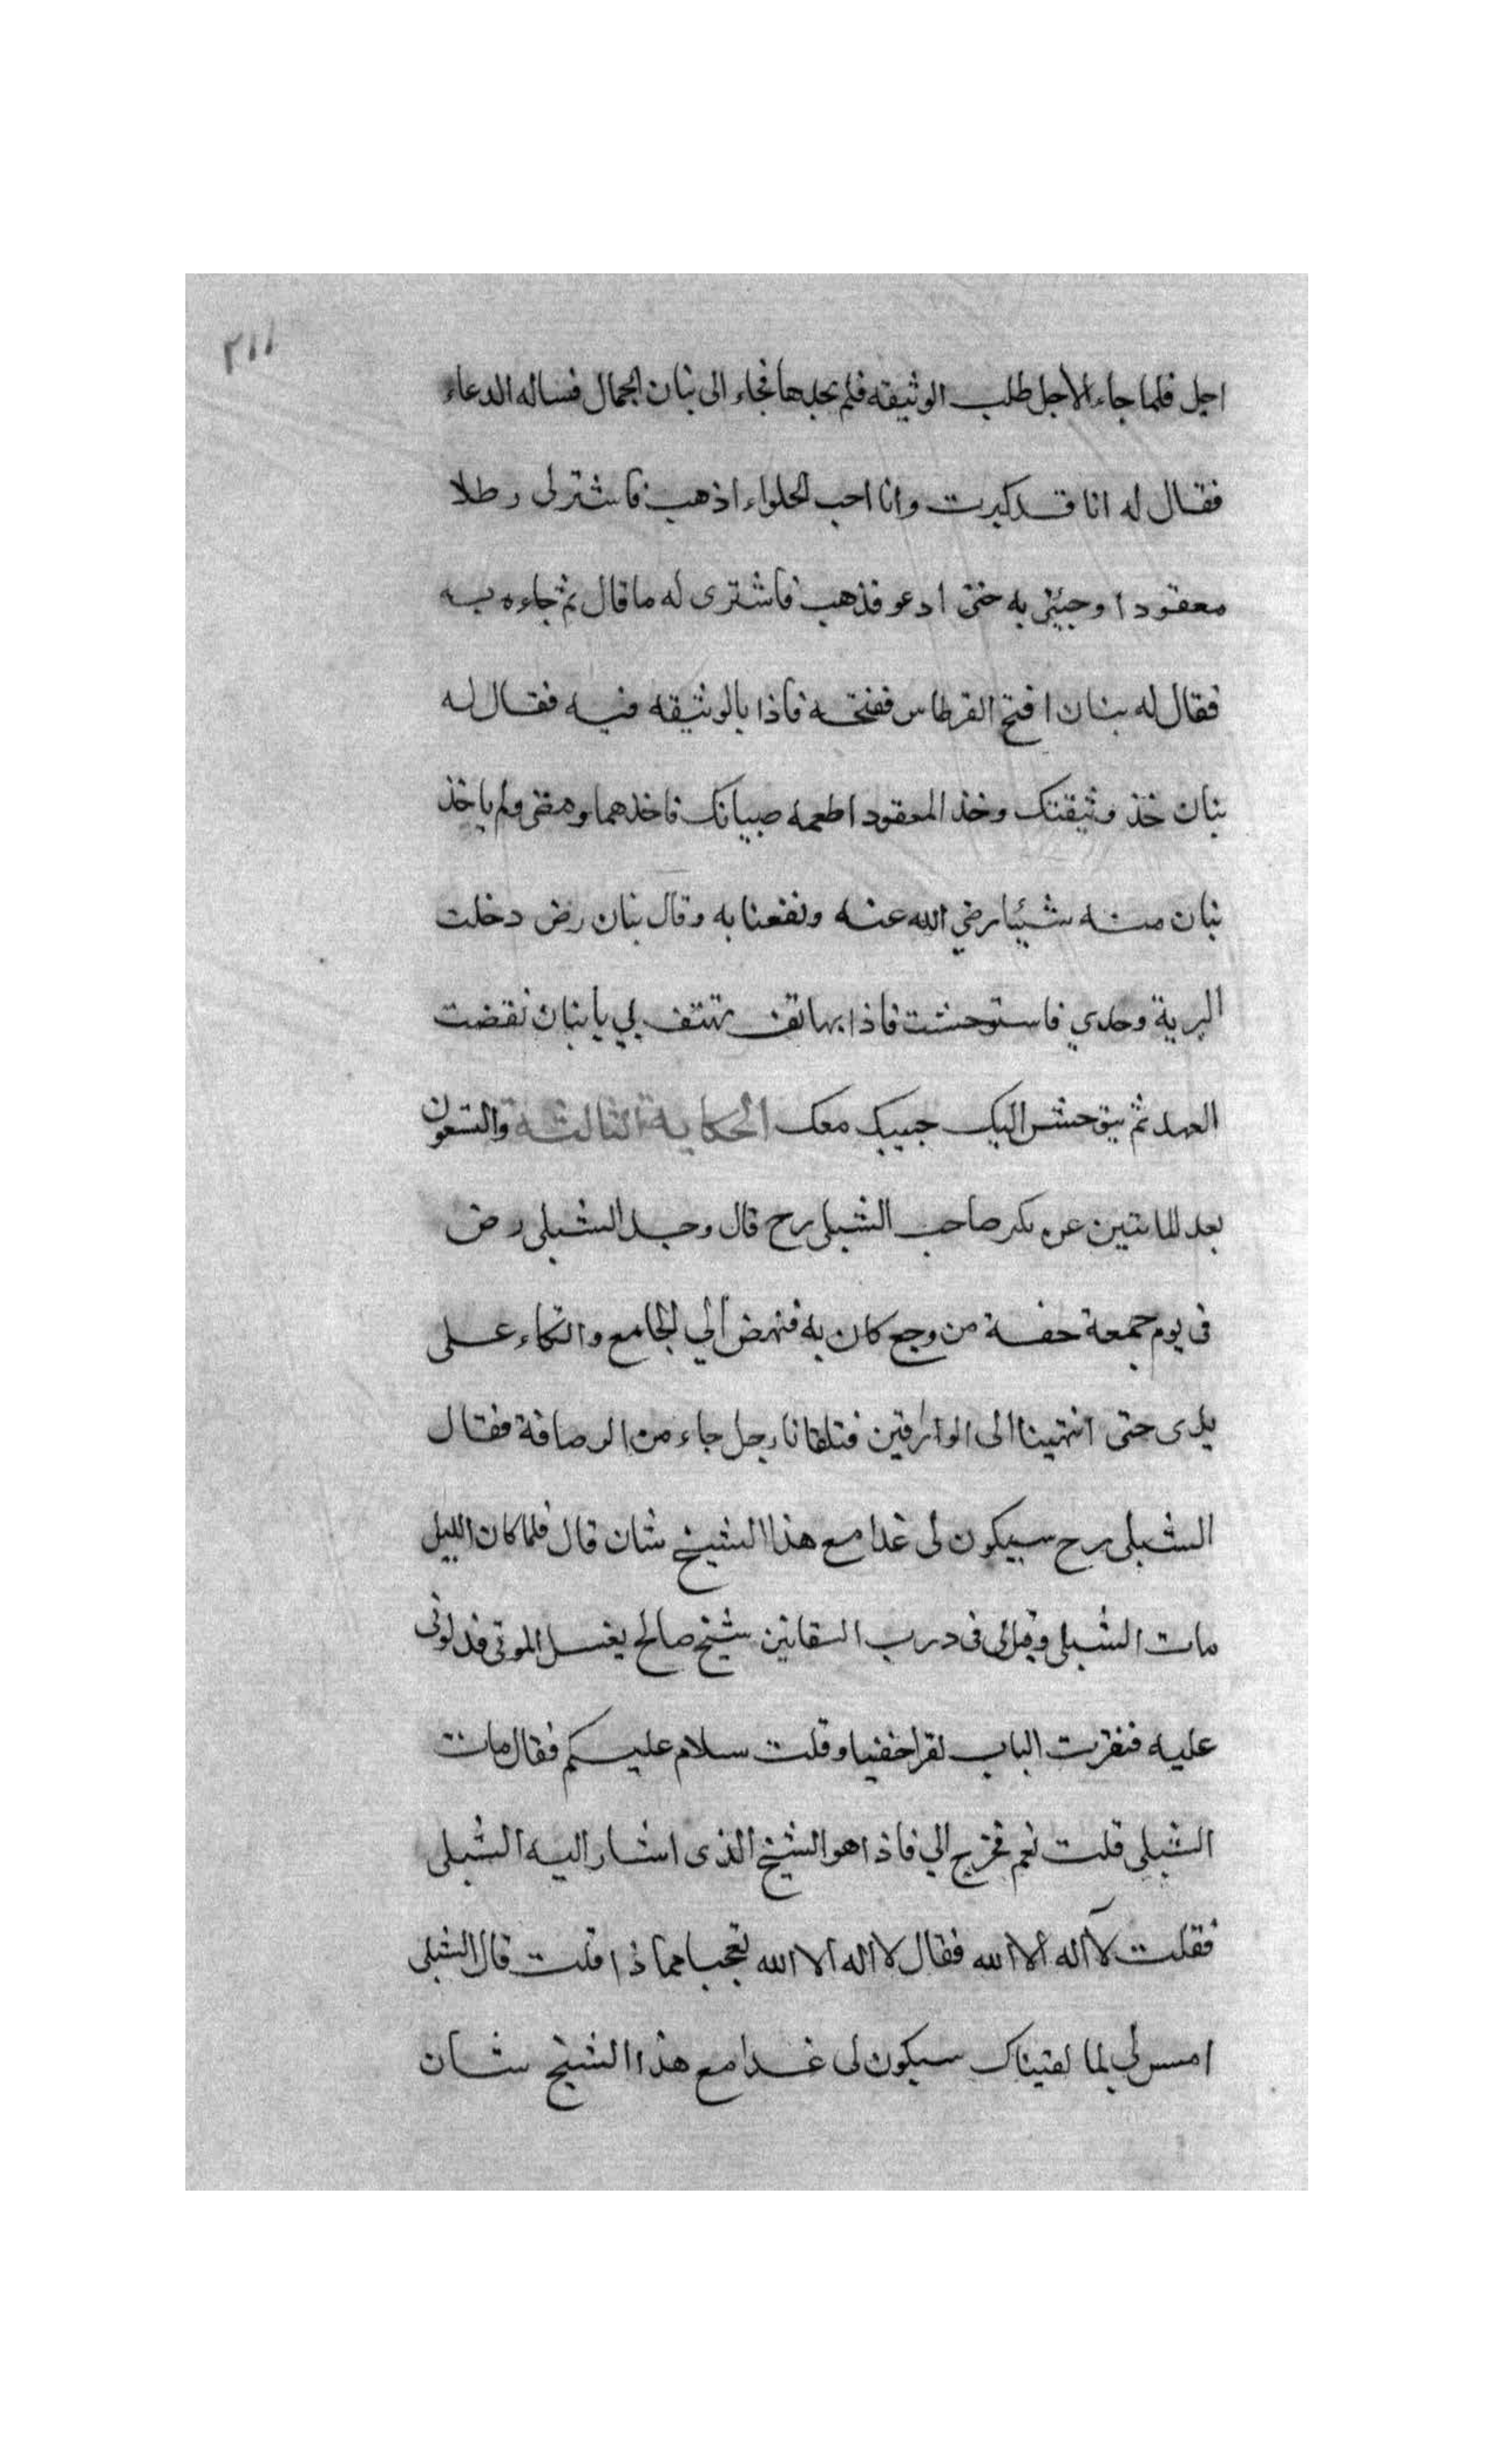 ٢١١
اجل فلما جاء الاجل طلب الوثيقه فلم يجدها فجاء الى بنان الجمال فساله الدعاء
فقال له انا قد كبرت وانا احب الحلواء اذهب فاشتر لى رطلا
معقودا وجيئنى به حتى ادعو فذهب فاشترى له ما قال ثم جاءه به
فقال له بنان افتح القرطاس ففتحه فاذا بالوثيقه فيه فقال له
بنان خذ وثيقتك وخذ المعقود اطعمه صبيانك فاخذهما ومضى ولم ياخذ
بنان منه شيئا رضي الله عنه ونفعنا به وقال بنان رض دخلت
البرية وحدي فاستوحشت فاذا بهاتف يهتف بي يا بنان نقضت
العهد ثم حبيبك معك الحكاية الثالثة والتسعون
بعد المائتين عن بكر صاحب الشبلى رح قال وجد الشبلى رض
فى يوم جمعة خفة من وجع كان به فنهض الي الجامع واتكاء على
يدى حتى انتهينا الى الوارقين فتلقانا رجل جاء من الرصافة فقال
الشبلى رح سيكون لى غدا مع هذا الشيخ شان قال فلما كان الليل
مات الشبلى وقيل لى فى درب السقائين شيخ صالح يغسل الموتى فدلونى
عليه فنقرت الباب نقرا خفيا وقلت سلام عليكم فقال مات
الشبلى قلت نعم فخرج الي فاذا هو الشيخ الذى اشار اليه الشبلى
فقلت لآ اله الا الله فقال لا اله الا الله تعجبا مما ذا قلت قال الشبلى
امس لي لما لقيناك سيكون لى غدا مع هذا الشيخ شان